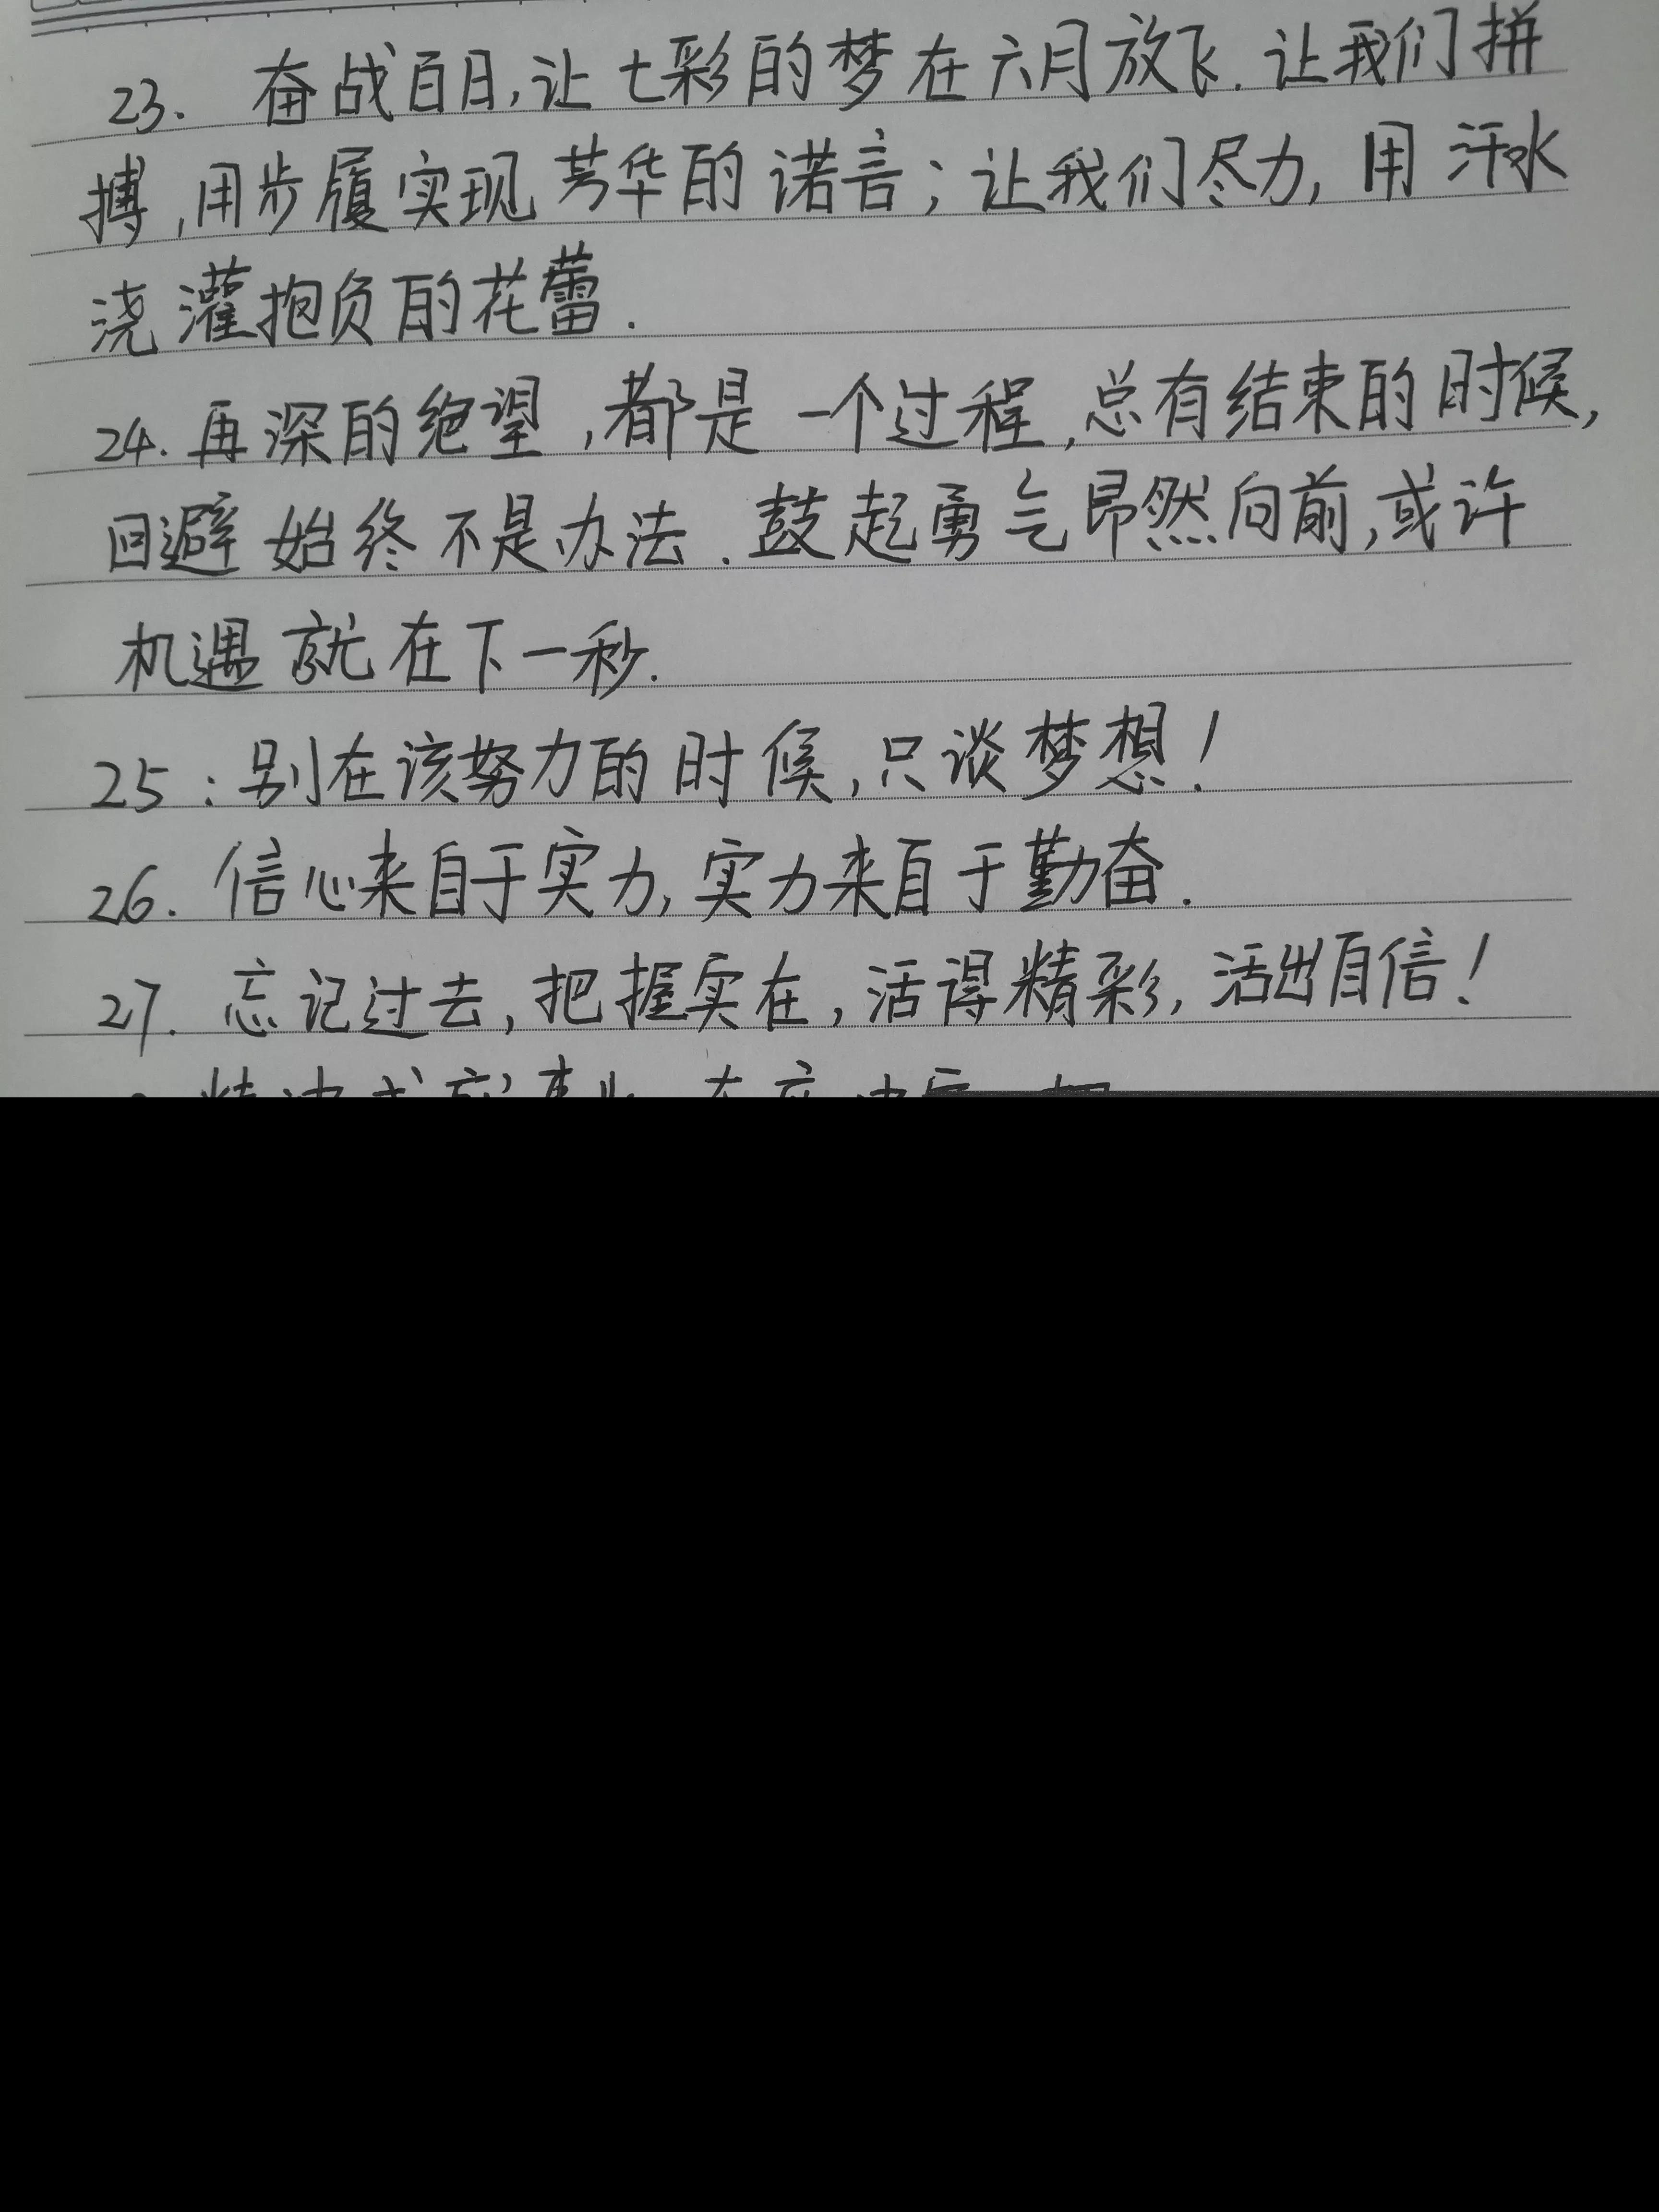 23. 奋战百日,让七彩的梦在六月放飞.让我们拼
搏,用步履实现芳华的诺言;让我们尽力,用汗水
浇灌抱负的花蕾.
24.再深的绝望,都是一个过程,总有结束的时候,
回避始终不是办法.鼓起勇气昂然向前,或许
机遇就在下一秒.
25:别在该努力的时候,只谈梦想!
26.信心来自于实力,实力来自于勤奋.
27.忘记过去,把握实在,活得精彩,活出自信!